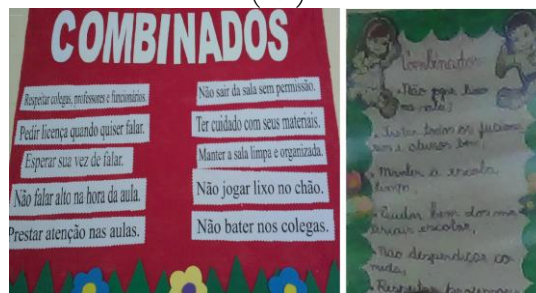 COMBINADOS
Respeitar colegas, professores e funcionários.
Pedir licença quando quiser falar.
Esperar sua vez de falar.
Não falar alto na hora da aula.
Prestar atenção nas aulas.
Não sair da sala sem permissão.
Ter cuidado com seus materiais.
Manter a sala limpa e organizada.
Não jogar lixo no chão.
Não bater nos colegas.
Combinados
Não jogar lixo
na sala;
Tratar todos os funcioná
rios e alunos bem;
Manter a escola
limpa;
Cuidar bem dos ma
teriais escolar;
Não desperdiçar co
mida;
Respeitar